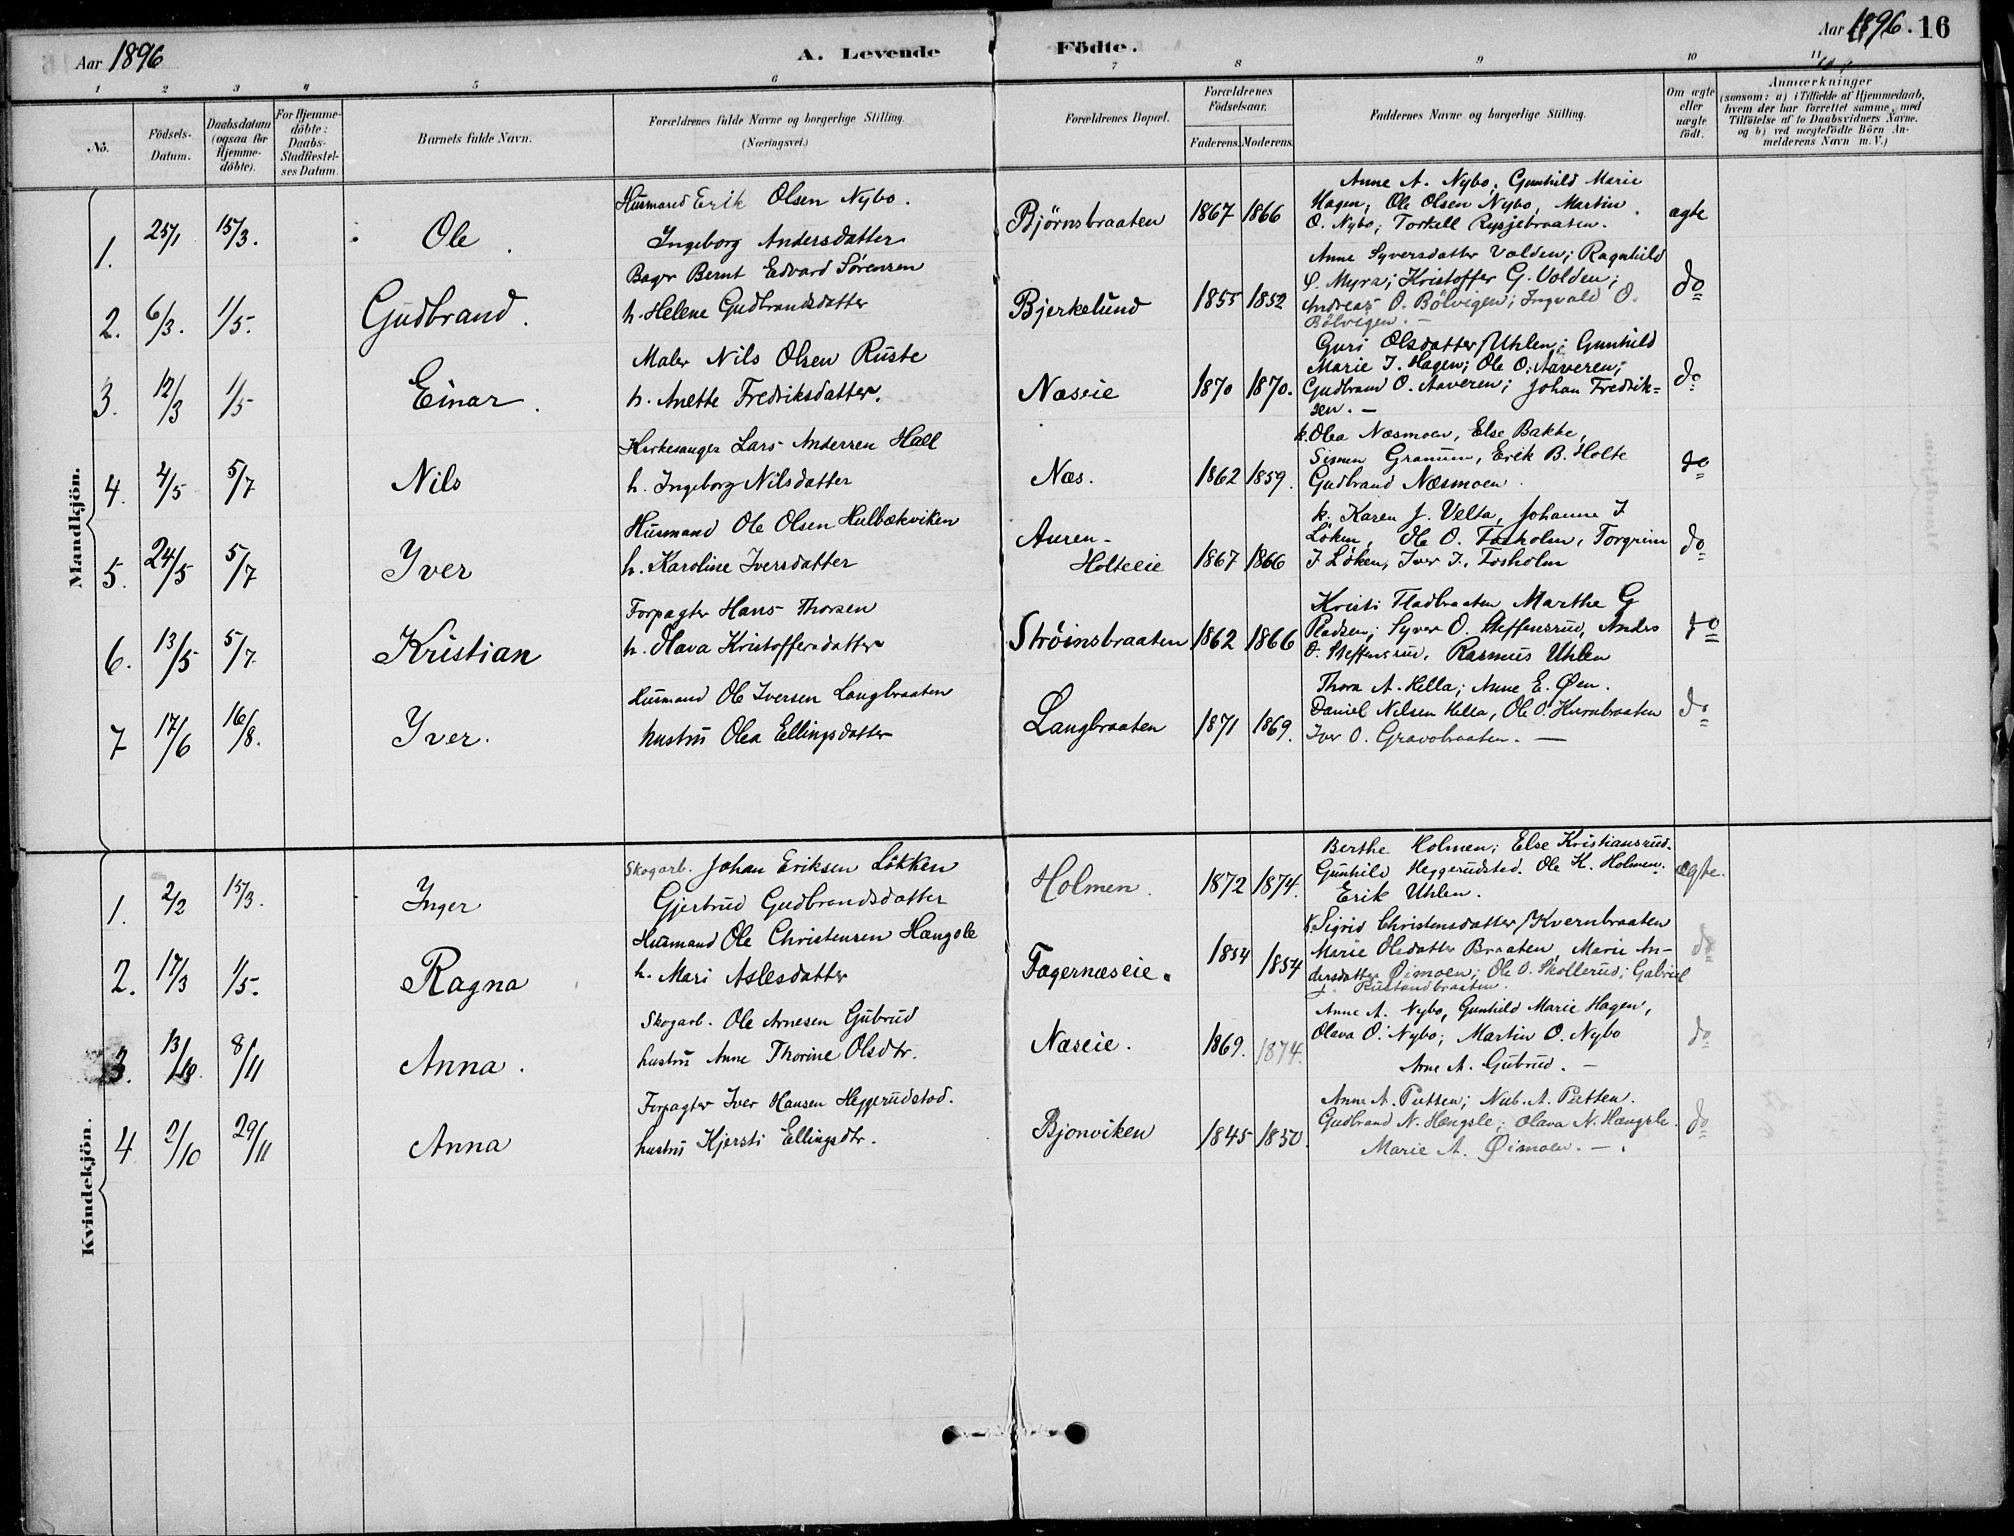 Aar 1896 A. Levende Födte. Aar 1896. 16
1 2 3 4 5 6 7 8 9 10 11
No. Födsels-Datum. Daabsdatum (ogsaa for Hjemme-döbte). For Hjemme-döbte: Daabs-Stadfæstel-ses Datum. Barnets fulde Navn. Forældrenes fulde Navne og borgerlige Stilling. (Næringsvei.) Forældrenes Bopæl. Forældrenes Födselsaar. Faderens. Moderens. Faddernes Navne og borgerlige Stilling. Om ægte eller uægte födt. Anmærkninger (saasom: a) i Tilfælde af Hjemmedaab, hvem der har forrettet samme, med Tilföielse af to Daabsvidners Navne. og b) ved uægtefödte Börn An-melderens Navn m. V.)
Mandkjön.
1. 25/1 15/3. Ole
Husmand Erik Olsen Nybo.
Ingeborg Andersdatter
Bjørnsbraaten 1867 1866
Anne A. Nybo, Gunhild Marie
Hagen; Ole Olsen Nybo, Martin
O. Nybo; Torkell Rysjebraaten.
ægte
2. 6/3. 1/5. Gudbrand.
Bager Bernt Edvard Sørensen
h. Helene Gudbrandsdatter
Bjerkelund 1855 1852
Anne Syversdatter Volden; Ragnhild
Myra; Kristoffer G. Volden;
Andreas O. Bölvigen; Ingvald O.
Bölvigen. —
do
3. 12/3 1/5 Einar.
Maler Nils Olsen Ruste
h. Anette Fredriksdatter.
Næseie 1870 1870.
Guri Olsdatter Uhlen; Gunhild
Marie J. Hagen; Ole O. Aaveren;
Gudbrand O. Aaveren; Johan Fredrik=
sen. —
do
4. 4/5 5/7 Nils
Kirkesanger Lars Andersen Hall
h. Ingeborg Nilsdatter
Næs. 1862 1859.
k. Olea Næsmoen, Else Bakke,
Simen Granum, Erik B. Holte
Gudbrand Næsmoen
do
5. 24/5 5/7 Iver
Husmand Ole Olsen Hulbækviken
h. Karoline Iversdatter
Auren-
Holteeie 1867 1866
k. Karen J. Velta, Johanne I
Løken, Ole O. Fosholm, Torgrim
I Løken, Iver I. Fosholm
do
6. 13/5 5/7. Kristian
Forpagter Hans Thorsen
h. Olava Kristoffersdatter
Strøinsbraaten 1862 1866
Kristi Fladbraaten Marthe G
Pladsen; Syver O. Steffensrud, Anders
O. Steffensrud, Rasmus Uhlen
do
7 17/6 16/8. Iver.
Husmand Ole Iversen Langbraaten
hustru Olea Ellingsdatter
Langbraaten 1871 1869.
Thora A. Hella; Anne E. Øen.
Daniel Nilsen Hella, Ole O. Hurnbraaten
Iver O. Gravobraaten. —
do
Kvindekjön.
1. 2/2 15/3. Inger
Skogarb. Johan Eriksen Løkken
Gjertrud Gudbrandsdatter
Holmen. 1872 1874.
Berthe Holmen; Else Kristiansrud.
Gunhild Heggerudsted. Ole K. Holmen.
Erik Uhlen.
ægte.
2. 17/3 1/5. Ragna
Husmand Ole Christensen Hængsle
h. Mari Aslesdatter
Fagernæseie. 1854 1854
k. Sigrid Christensdatter Kvernbraaten
Marie Olsdatter Braaten, Marie An-
dersdatter Øimoen; Ole O. Skollerud; Gabriel
Rustandbraaten.
do
3. 13/10. 8/11 Anna.
Skogarb. Ole Arnesen Gubrud
hustru Anne Thorine Olsdtr.
Næseie. 1869. 1874.
Anne A. Nybo, Gunhild Marie Hagen,
Olava O. Nybo; Martin O. Nybo
Arne A. Gubrud. —
do
4 2/10 29/11 Anna
Forpagter Iver Hansen Heggerudstad.
hustru Kjersti Ellingsdtr.
Bjonviken 1845 1850.
Anne A. Putten; Nub. A. Putten.
Gudbrand N. Hængsle; Olava N. Hængsle.
Marie A. Øimoen. —.
do